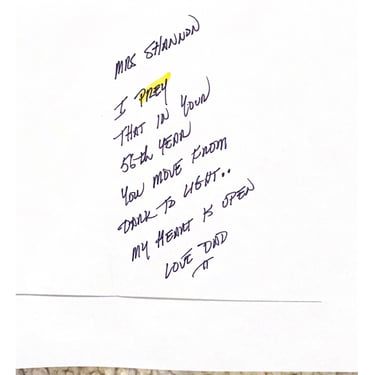 MRS SHANNON
I PREY
THAT IN YOUR
56th YEAR
YOU MOVE FROM
DARK TO LIGHT..
MY HEART IS OPEN
LOVE DAD